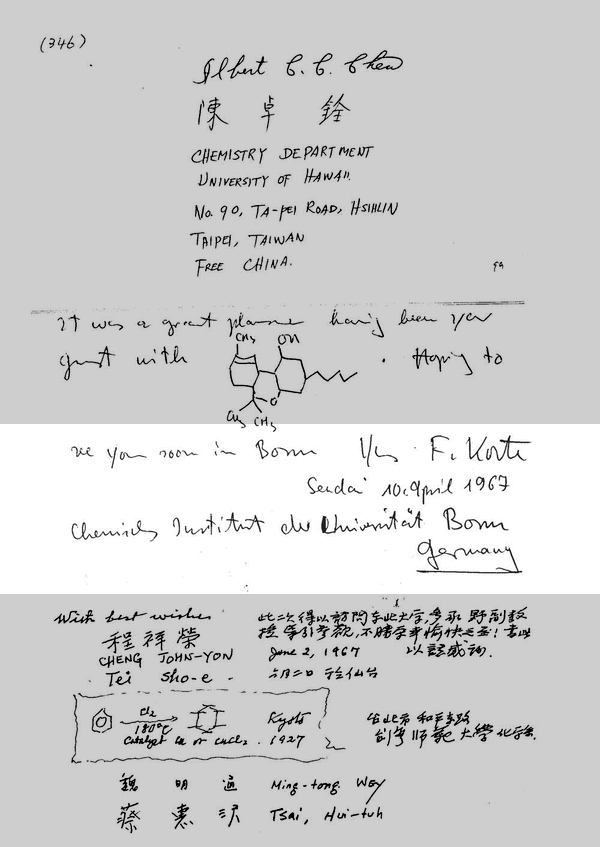 (346)
Albert C. C. Chen
陳 卓 銓
CHEMISTRY DEPARTMENT
UNIVERSITY OF HAWAII.
No. 90, TA-PEI ROAD, HSIHLIN
TAIPEI, TAIWAN
FREE CHINA.
It was a great pleasure having been your
guest with
CH3
OH
O
CH3
CH3
. Hoping to
see you soon in Bonn
F. Korte
Sendai 10. April 1967
Chemisches Institut der Universität Bonn
Germany
With best wishes
程 祥 榮
CHENG JOHN-YON
Tei Sho-e
此次得以訪問東北大學,
June 2, 1967
六月二日 於仙台
Cl2
180°C
Catalyst Cu or CuCl2
Kyoto
1927
台北市和平東路
台灣師範大學化學系
魏 明 通 Ming-tong WEY
蔡 惠 Tsai, Hui-tuh